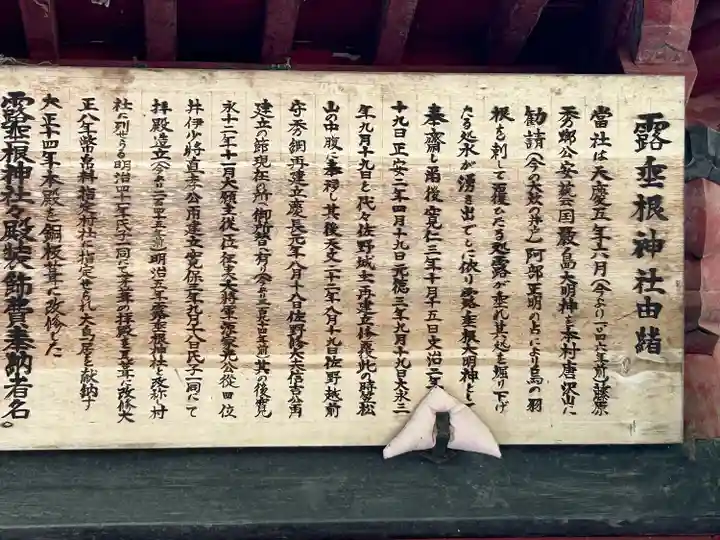 露垂根神社由緒
當社は天慶五年六月(今より一〇四一年前)藤原
秀郷公安芸国嚴島大明神を本村唐沢山に
勧請(今の大炊の井戸)阿部正明の占により烏の羽
根を刺して覆ひたる処露が垂れ其処を掘り下げ
たる処水が湧き出でしに依り露垂根大明神として
奉齋し爾後寛仁三年十月十五日文治二年
十九日正安二年四月十九日元徳三年九月十九日大永三
年九月十九日と代々佐野城主再建立修覆此の時笠松
山の中腹に奉移し其後天文二十二年八月十九日佐野越前
守秀綱再建立慶長元年八月十八日佐野修大夫信吉公再
建立の節現在の所へ御移宮に
永十二年十一月大願主従一位征夷大将軍源家光公従四位
井伊少将直孝公再建立寛保三年九月十八日氏子一同にて
拝殿造立 明治五年露垂根神社と改称し村
社に列せらる明治四十一年氏子一同にて茅葺の拝殿を瓦葺に改修大
正八年幣帛料指定村社に指定せられ大鳥居を献納す
大正十四年本殿を銅板葺に改修した
露垂根神社々殿装飾費奉納者名。